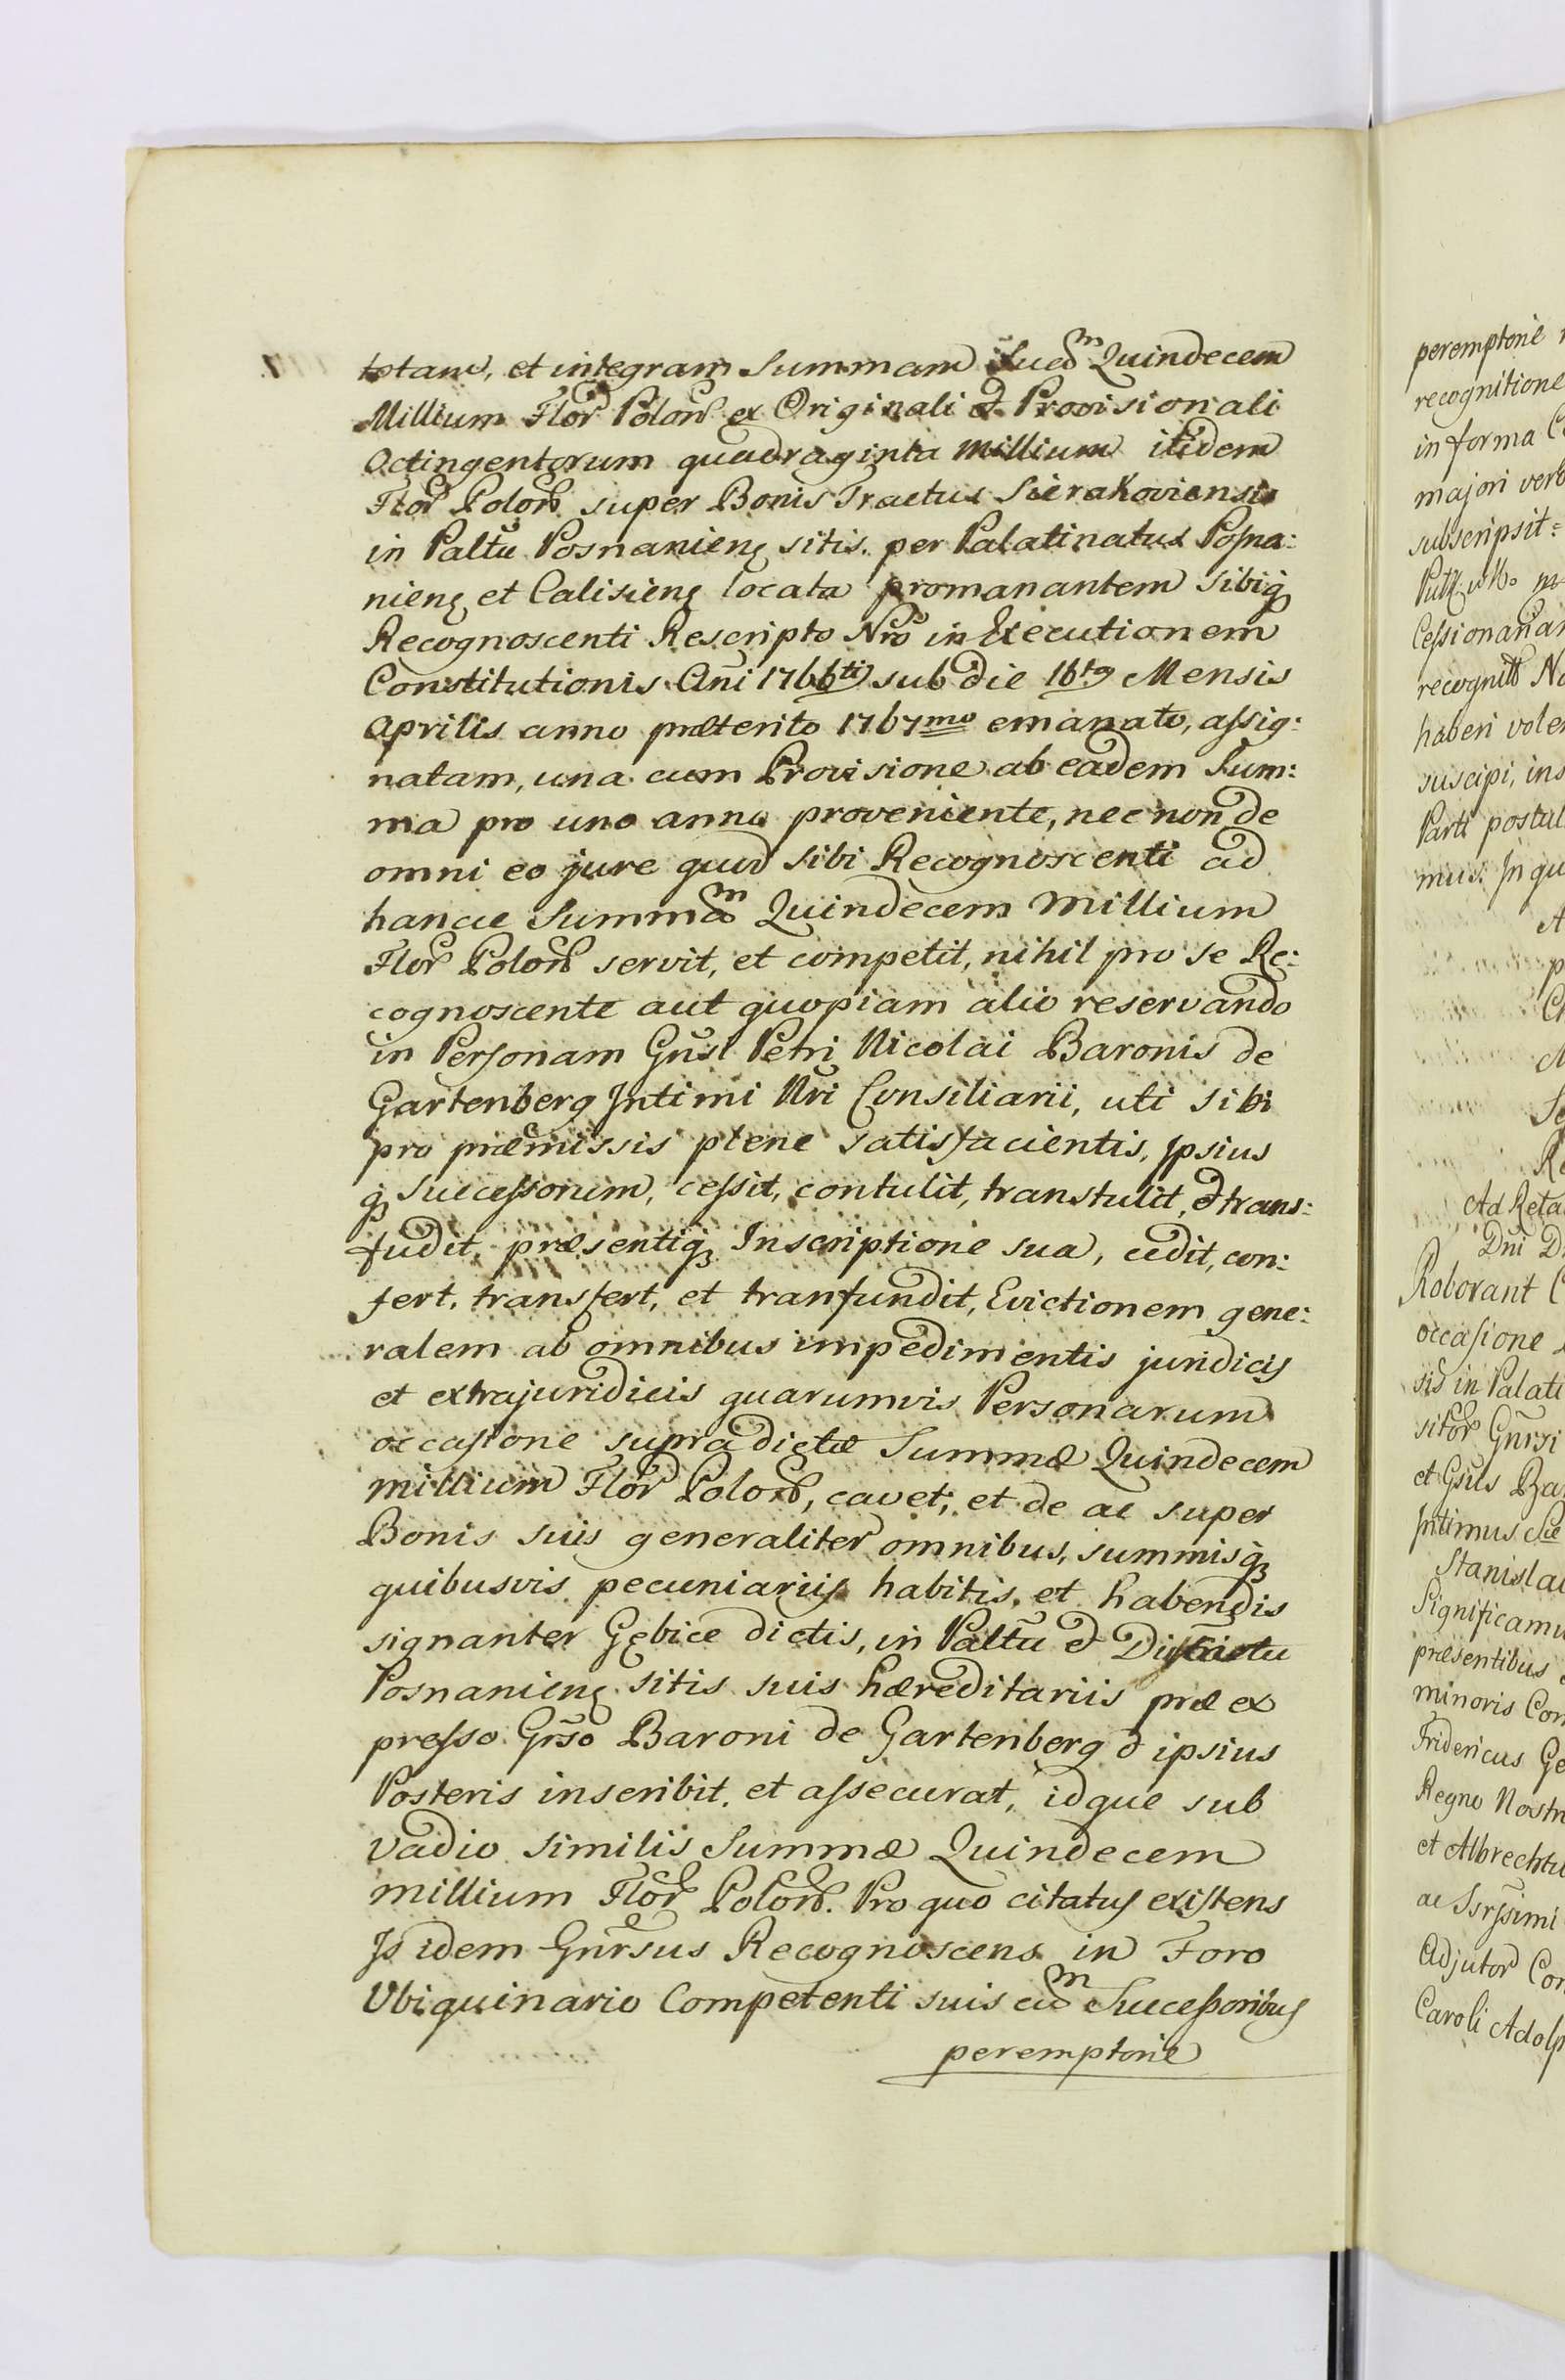 totam, et integram Summam Suam Quindecem
Millium Flor Polon ex Originali et Provisionali
Octingentorum quadraginta Millium itidem
Flor Polon super Bonis Tractus Sierakoviensis
in Paltu Posnanieng sitis. per Palatinatus Posna:
nieng et Calisieng locata promanantem Sibiq
Recognoscenti Rescripto Nro in Executionem
Constitutionis Ani 1766ti sub die 16ta Mensis
Aprilis anno præterito 1767mo emanato, assig:
natam, una cum Provisione ab eadem Sum:
ma pro uno anno proveniente, nec non de
omni eo jure quod sibi Recognoscenti ad
hancce Summam Quindecem Millium
Flor Polon servit, et competit, nihil pro se Re:
cognoscente aut quopiam alio reservando
in Personam Gnsi Petri Nicolai Baronis de
Gartenberg Intimi Nri Consiliarii, uti sibi
pro præmissis plene satisfacientis, Ipsius
q Successorum, cessit, contulit, transtulit, et trans:
fudit, præsentiq Inscriptione sua, cedit, con:
fert, transfert, et tranfundit, Evictionem gene:
ralem ab omnibus impedimentis juridicis
et extrajuridicis quarumvis Personarum
occasione supra dictæ Summæ Quindecem
millium Flor Polon, cavet; et de ac super
Bonis suis generaliter omnibus, summisq
quibusvis pecuniariis habitis, et habendis
signanter Gębice dictis, in Paltu et Districtu
Posnanieng sitis suis hæreditariis præ ex
presso Grso Baroni de Gartenberg et ipsius
Posteris inscribit, et assecurat, idque sub
vadio similis Summæ Quindecem
millium Flor Polon. Pro quo citatus existens
Is idem Gnrsus Recognoscens in Foro
Ubiquinario Competenti suis cum Successoribus
peremptorie
peremptorie
recognitione
in forma
majori verb
subscripsit=
Cessionariam
recognitt
haberi volen
suscipi, ins
Parti postul
mus. In qu
Ad Rela
Dni D
Roborant C
occasione
sis in Palati
sitor Gnrsi
et Gsus Ba
Intimus
Stanislai
Significamu
præsentibus
minoris Con
Fridericus Ge
Regno Nostr
et Albrechtu
ac Ssrssimi
Adjutor Con
Caroli Adolp